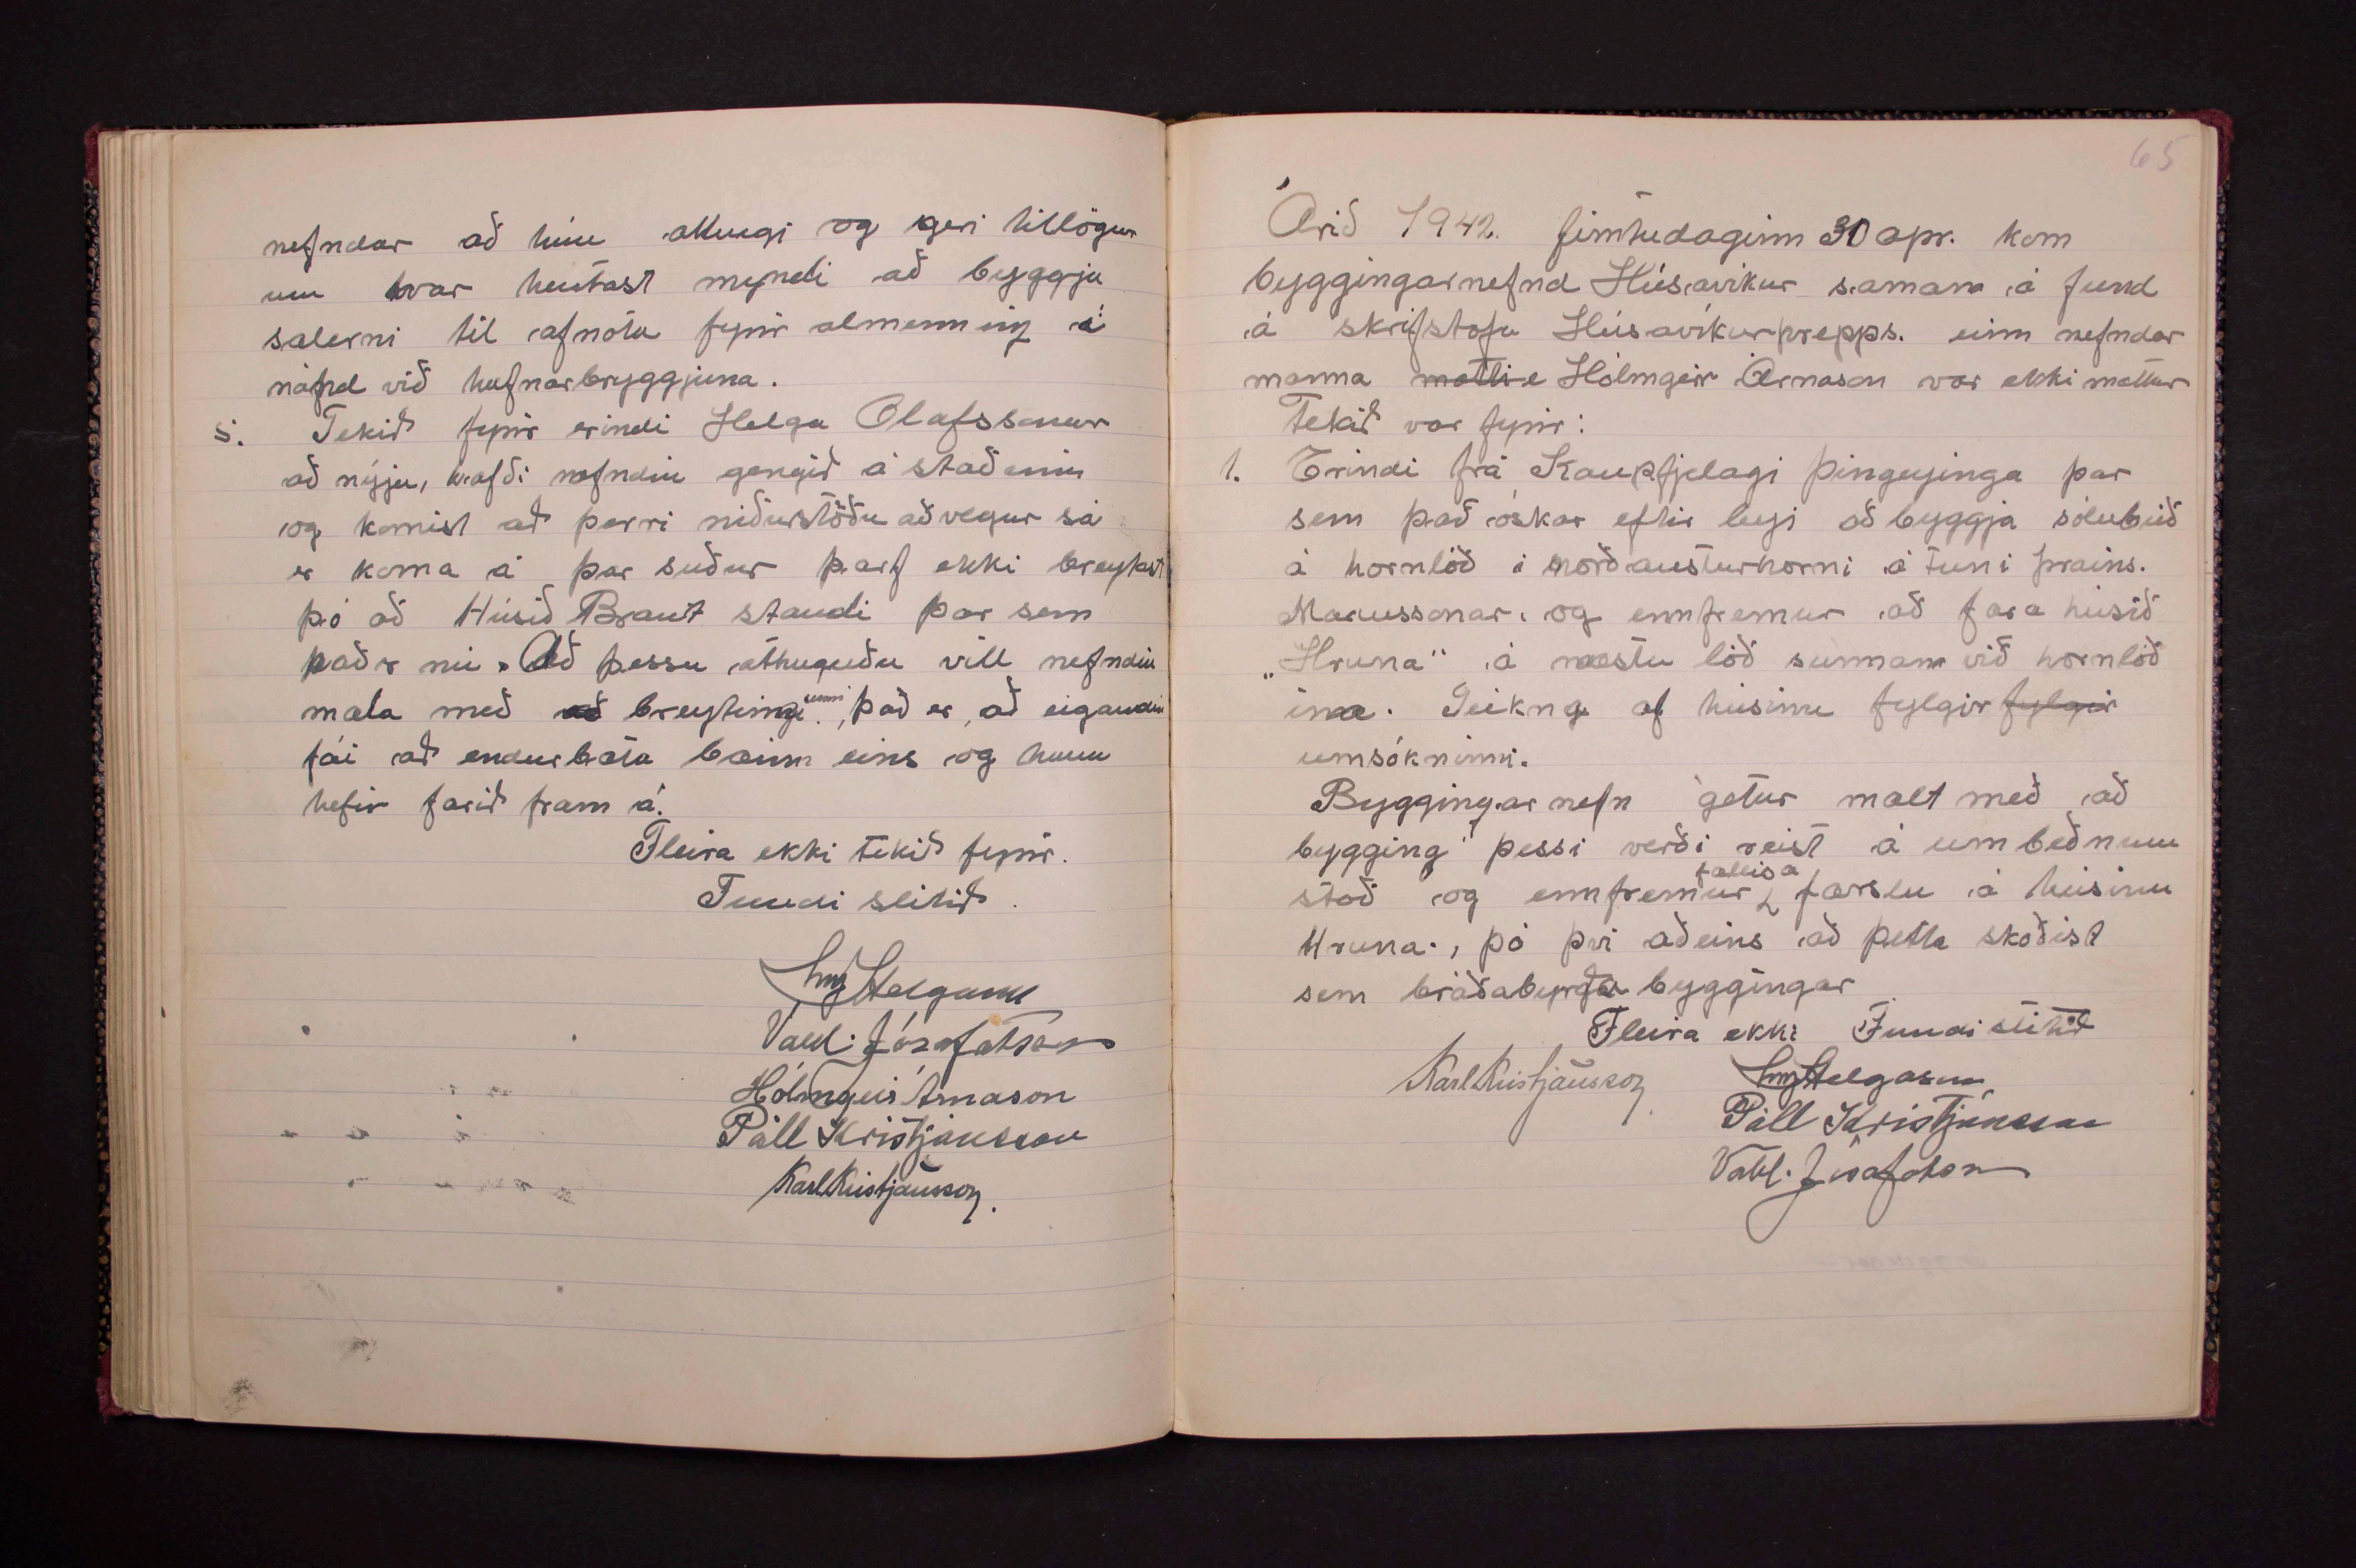 nefndar að hún athugi og geri tillögur
um hvar hentast myndi að byggja
salerni til afnota fyrir almenning á
nánd við hafnarbryggjuna.
5. Tekið fyrir erindi Helga Ólafssonar
að nýju, hafði nefndin gengið á staðinn
og komist að þerri niðurstöðu að vegur sá
er koma á þar suður þarf ekki breytast
þó að Húsið Braut standi þar sem
það er nú. Að þessu athuguðu vill nefndin
mæla með breytingunni, það er, að eigandin
fái að endurbæta bæinn eins og hann
hefir farið fram á.
Fleira ekki tekið fyrir.
Fundi slitið.
Ing Helgason
Vald. Jósafatsson
Hólmgeir Árnason
Páll Kristjánsson
Karl Kristjánsson.
65
Árið 1942. fimtudaginn 30 apr. kom
byggingarnefnd Húsavíkur saman á fund
á skrifstofu Húsavíkurhrepps. einn nefndar
manna mætti Hólmgeir Árnason var ekki mættur
Tekið var fyrir:
1. Erindi frá Kaupfjelagi Þingeyinga þar
sem það óskar eftir leyfi að byggja sölubúð
á hornlóð í norðausturhorni á túni Þráins.
Maríussonar. og ennfremur að færa húsið
„Hruna“ á næstu lóð sunnan við hornlóð
ina. Teikng af húsinu fylgir fylgir
umsókninni.
Byggingarnefn getur mælt með að
bygging þessi verði reist á umbeðnum
stað og ennfremur fallist á færslu á húsinu
Hruna., þó því aðeins að þetta skoðist
sem bráðabyrgða byggingar
Fleira ekki Fundi slitið
Karl Kristjánsson Ing Helgason
Páll Kristjánsson
Vald. Jósafatsson